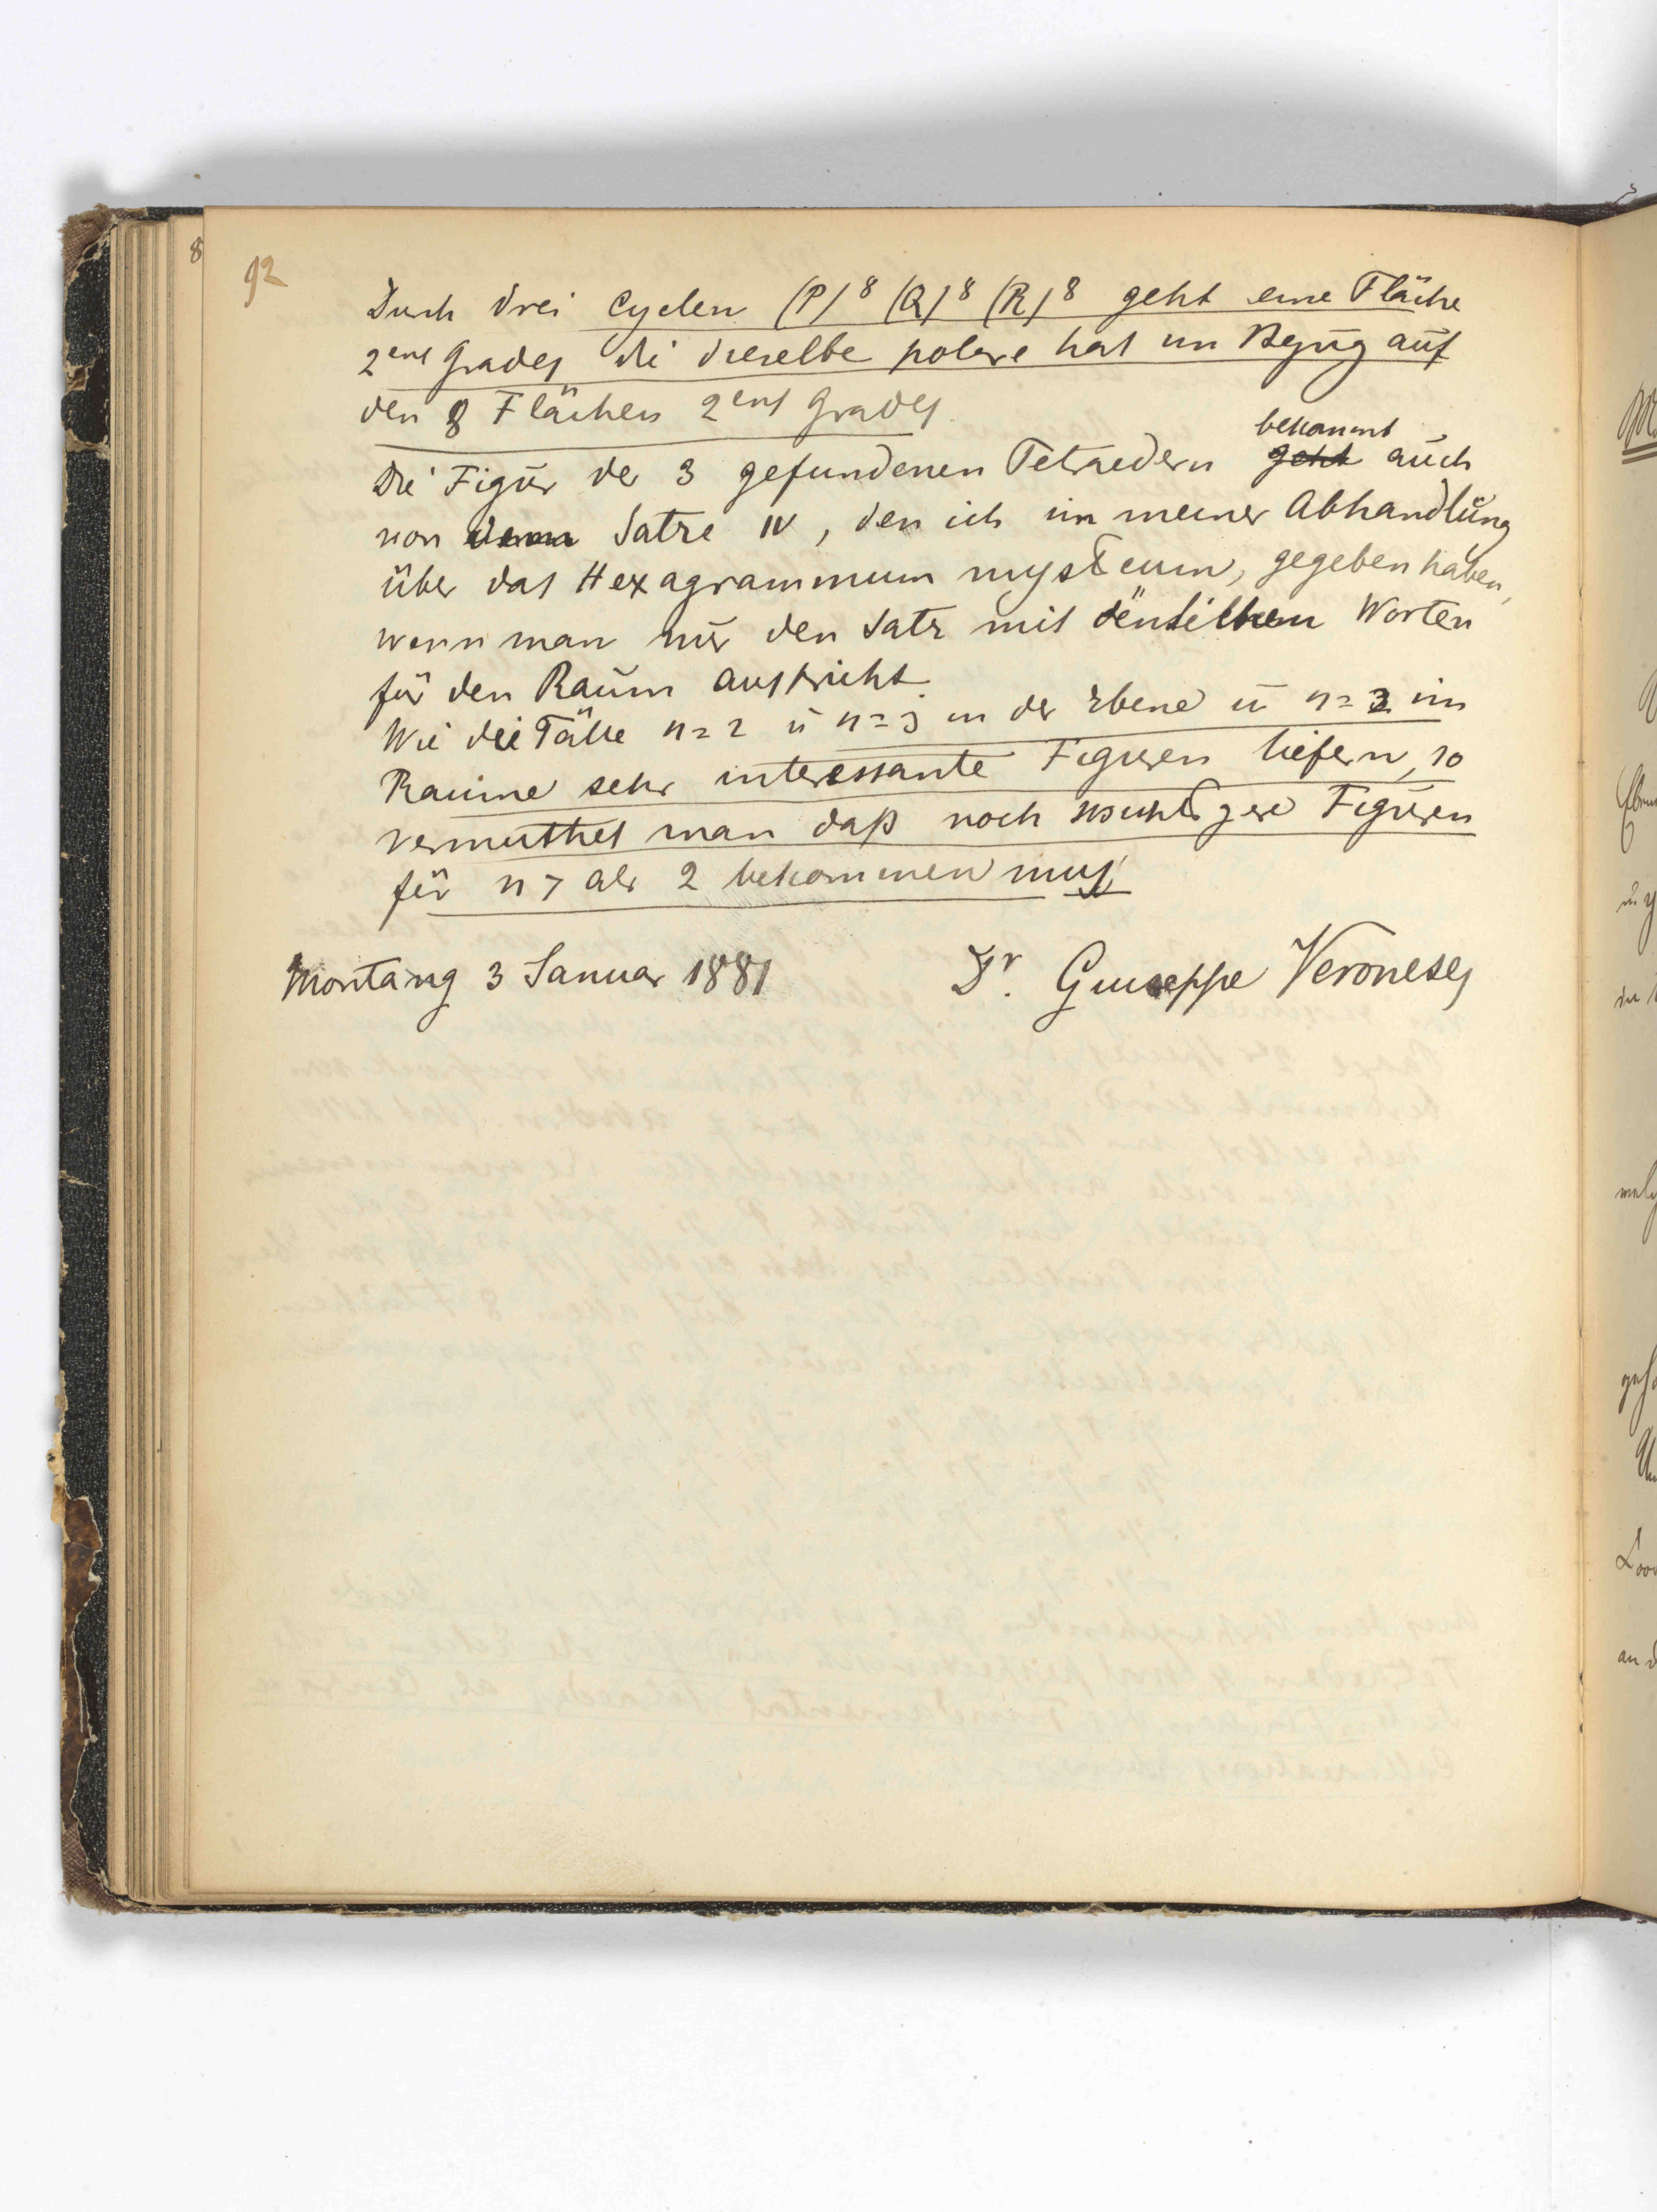 92
Durch drei Cyclen (P)⁸ (Q)⁸ (R)⁸ geht eine Fläche
2ens Grades die dieselbe polare hat im Bezug auf
den 8 Flächen 2ens Grades.
bekommt
Die Figur der 3 gefundenen Tetraedern geht auch
von dem Satze IV, den ich im meiner Abhandlung
über das Hexagrammum mysticum, gegeben haben,
wenn man nur den Satz mit Worten
für den Raum ausspricht.
Wie die Fälle n=2 u n=3 in der Ebene u n=2 im
Raume sehr interessante Figuren liefern, so
vermuthet man daß noch wichtigere Figuren
für n > als 2 bekommen muß
Montang 3 Januar 1881
Dr. Giuseppe Veronese
8